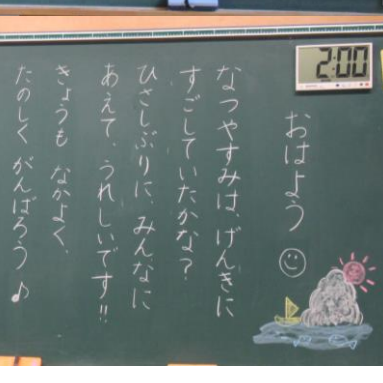 2:00
おはよう
なつやすみは、げんきに
すごしていたかな？
ひさしぶりに、みんなに
あえて、うれしいです!!
きょうも なかよく、
たのしく がんばろう♪